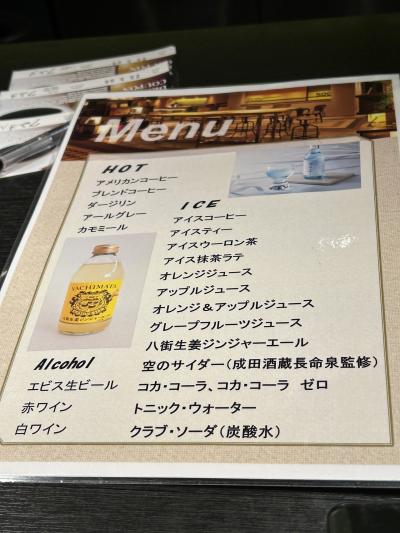 Menu
HOT
アメリカンコーヒー
ブレンドコーヒー
ダージリン
アールグレー
カモミール
ICE
アイスコーヒー
アイスティー
アイスウーロン茶
アイス抹茶ラテ
オレンジジュース
アップルジュース
オレンジ＆アップルジュース
グレープフルーツジュース
八街生姜ジンジャーエール
空のサイダー(成田酒蔵長命泉監修)
コカ・コーラ、コカ・コーラ ゼロ
トニック・ウォーター
クラブ・ソーダ(炭酸水)
YACHIMATA
Alcohol
エビス生ビール
赤ワイン
白ワイン